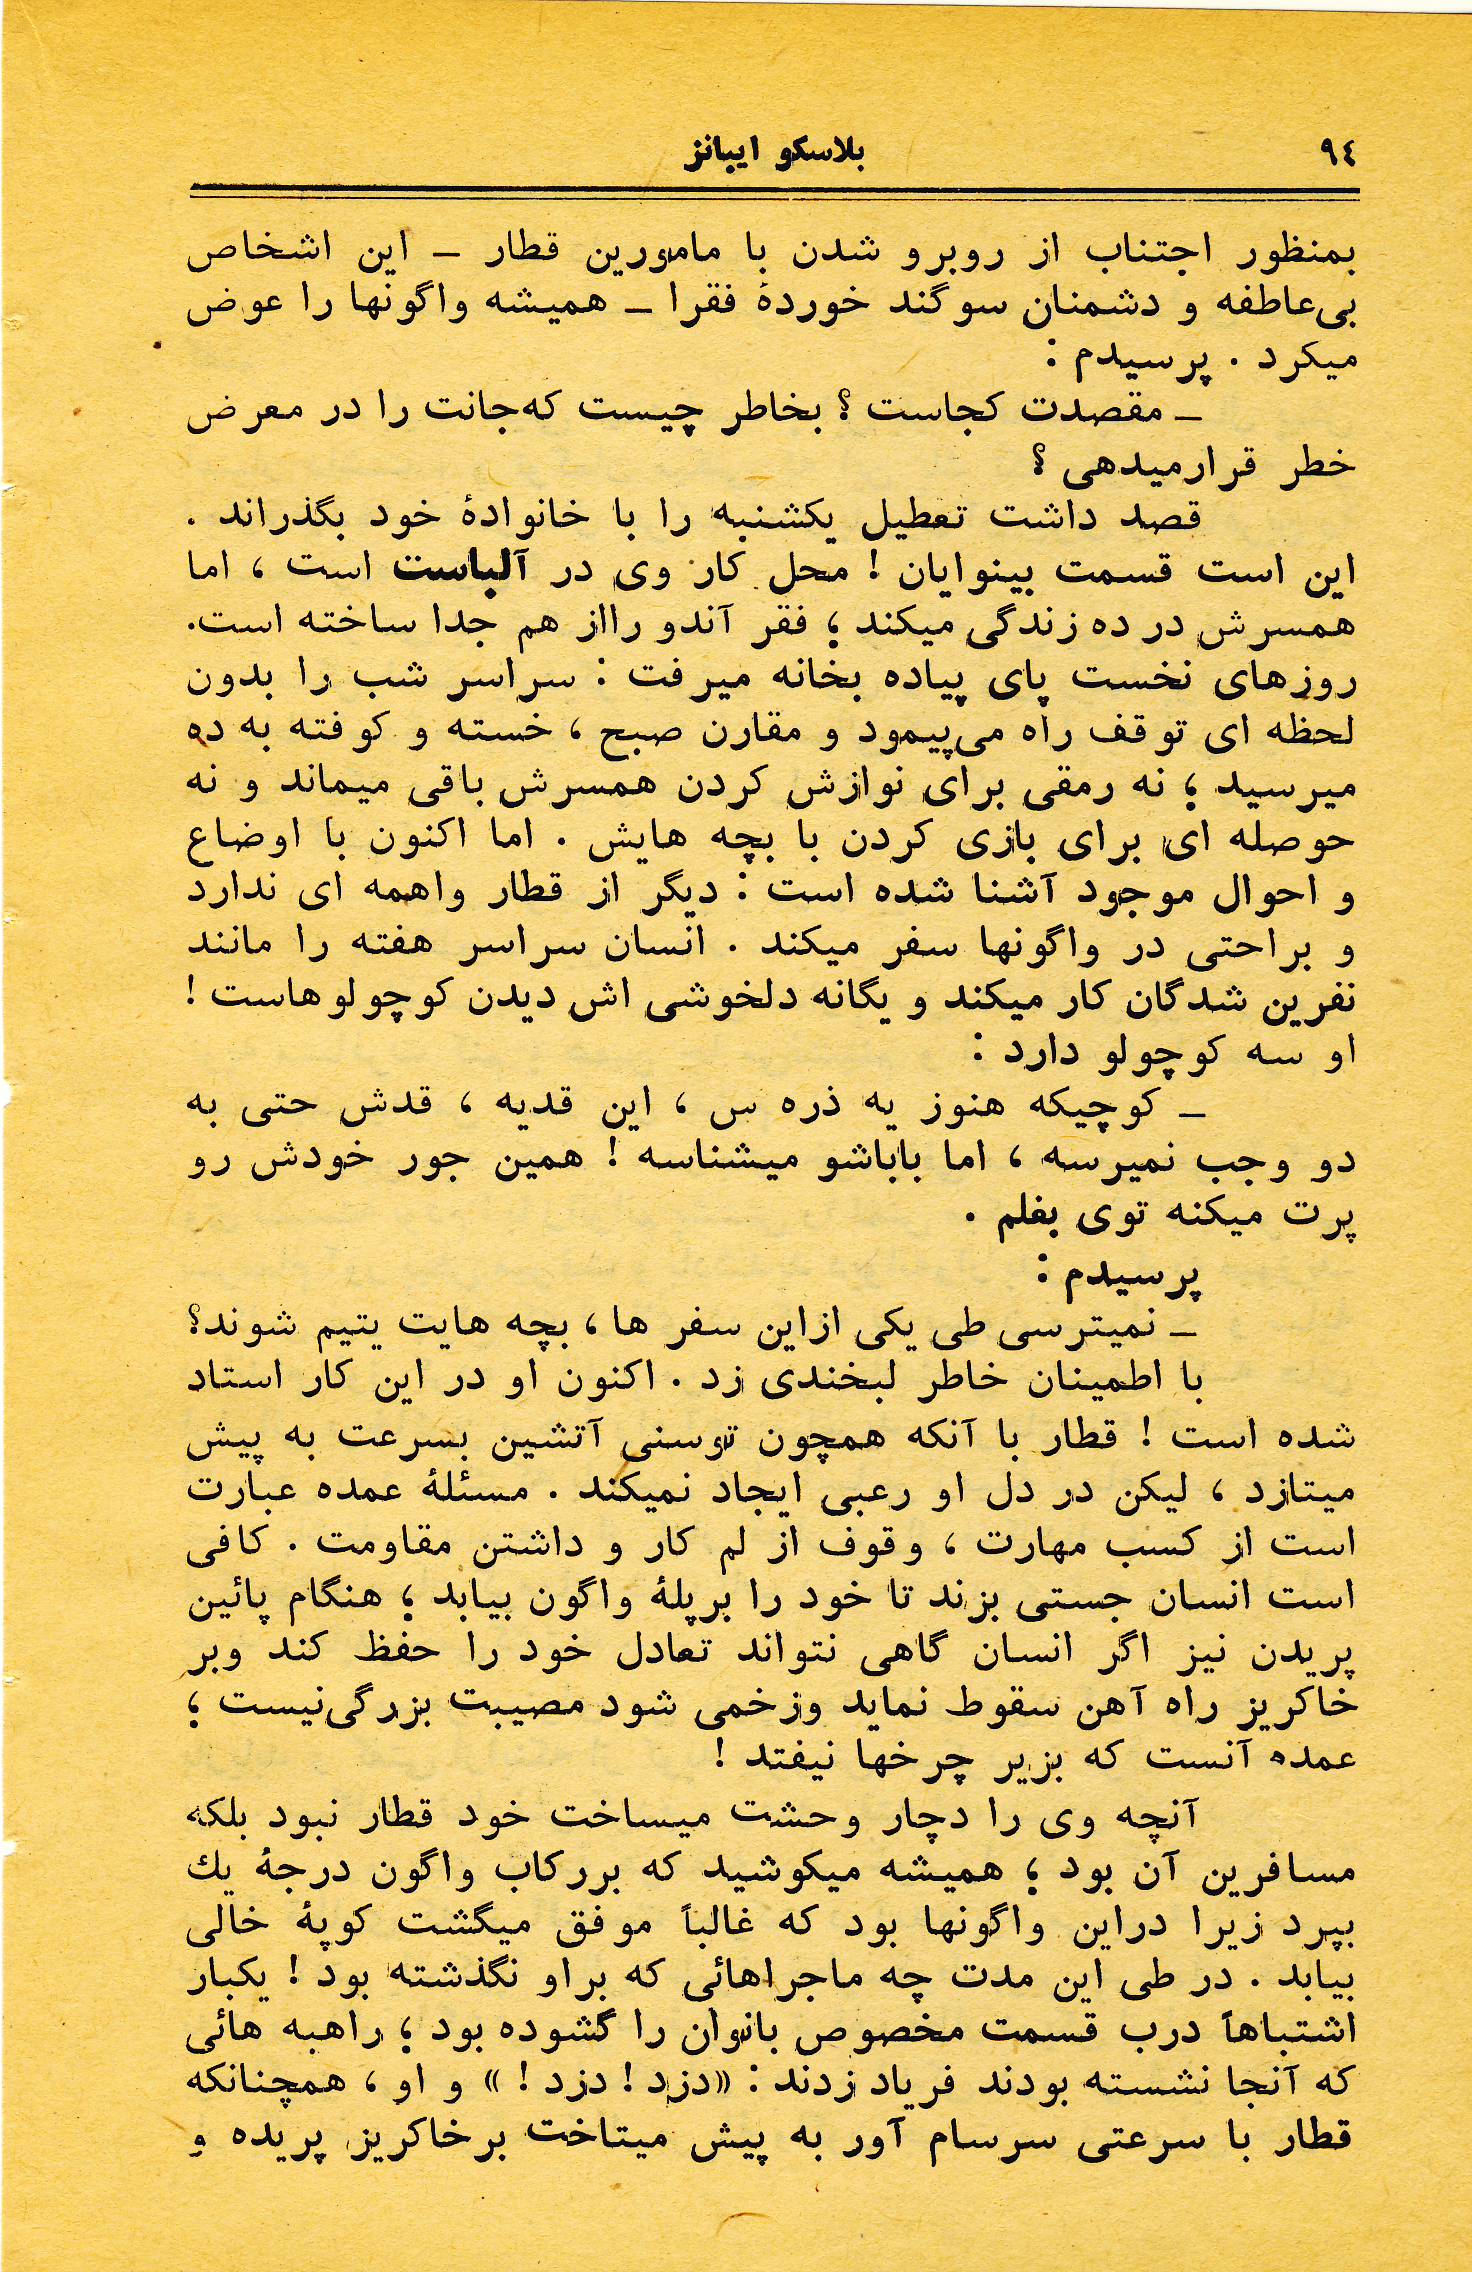 ۹٤
بلاسکو ایبانز
بمنظور اجتناب از روبرو شدن با مامورین قطار ـ این اشخاص
بی‌عاطفه و دشمنان سوگند خوردهٔ فقرا ـ همیشه واگونها را عوض
میکرد . پرسیدم :
ـ مقصدت کجاست ؟ بخاطر چیست که‌جانت را در معرض
خطر قرارمیدهی ؟
قصد داشت تعطیل یکشنبه را با خانوادهٔ خود بگذراند .
این است قسمت بینوایان ! محل کار وی در آلباست است ، اما
همسرش در ده زندگی میکند ؛ فقر آندو رااز هم جدا ساخته است.
روزهای نخست پای پیاده بخانه میرفت : سراسر شب را بدون
لحظه ای توقف راه می‌پیمود و مقارن صبح ، خسته و کوفته به ده
میرسید ؛ نه رمقی برای نوازش کردن همسرش باقی میماند و نه
حوصله ای برای بازی کردن با بچه هایش . اما اکنون با اوضاع
و احوال موجود آشنا شده است : دیگر از قطار واهمه ای ندارد
و براحتی در واگونها سفر میکند . انسان سراسر هفته را مانند
نفرین شدگان کار میکند و یگانه دلخوشی اش دیدن کوچولوهاست !
او سه کوچولو دارد :
ـ کوچیکه هنوز یه ذره س ، این قدیه ، قدش حتی به
دو وجب نمیرسه ، اما باباشو میشناسه ! همین جور خودش رو
پرت میکنه توی بغلم .
پرسیدم :
ـ نمیترسی طی یکی ازاین سفر ها ، بچه هایت یتیم شوند؟
با اطمینان خاطر لبخندی زد . اکنون او در این کار استاد
شده است ! قطار با آنکه همچون توسنی آتشین بسرعت به پیش
میتازد ، لیکن در دل او رعبی ایجاد نمیکند . مسئلهٔ عمده عبارت
است از کسب مهارت ، وقوف از لم کار و داشتن مقاومت . کافی
است انسان جستی بزند تا خود را برپلهٔ واگون بیابد ؛ هنگام پائین
پریدن نیز اگر انسان گاهی نتواند تعادل خود را حفظ کند وبر
خاکریز راه آهن سقوط نماید وزخمی شود مصیبت بزرگی‌نیست ؛
عمده آنست که بزیر چرخها نیفتد !
آنچه وی را دچار وحشت میساخت خود قطار نبود بلکه
مسافرین آن بود ؛ همیشه میکوشید که بررکاب واگون درجهٔ یك
بپرد زیرا دراین واگونها بود که غالباً موفق میگشت کوپهٔ خالی
بیابد . در طی این مدت چه ماجراهائی که براو نگذشته بود ! یکبار
اشتباهاً درب قسمت مخصوص بانوان را گشوده بود ؛ راهبه هائی
که آنجا نشسته بودند فریاد زدند : «دزد ! دزد ! » و او ، همچنانکه
قطار با سرعتی سرسام آور به پیش میتاخت برخاکریز پریده و